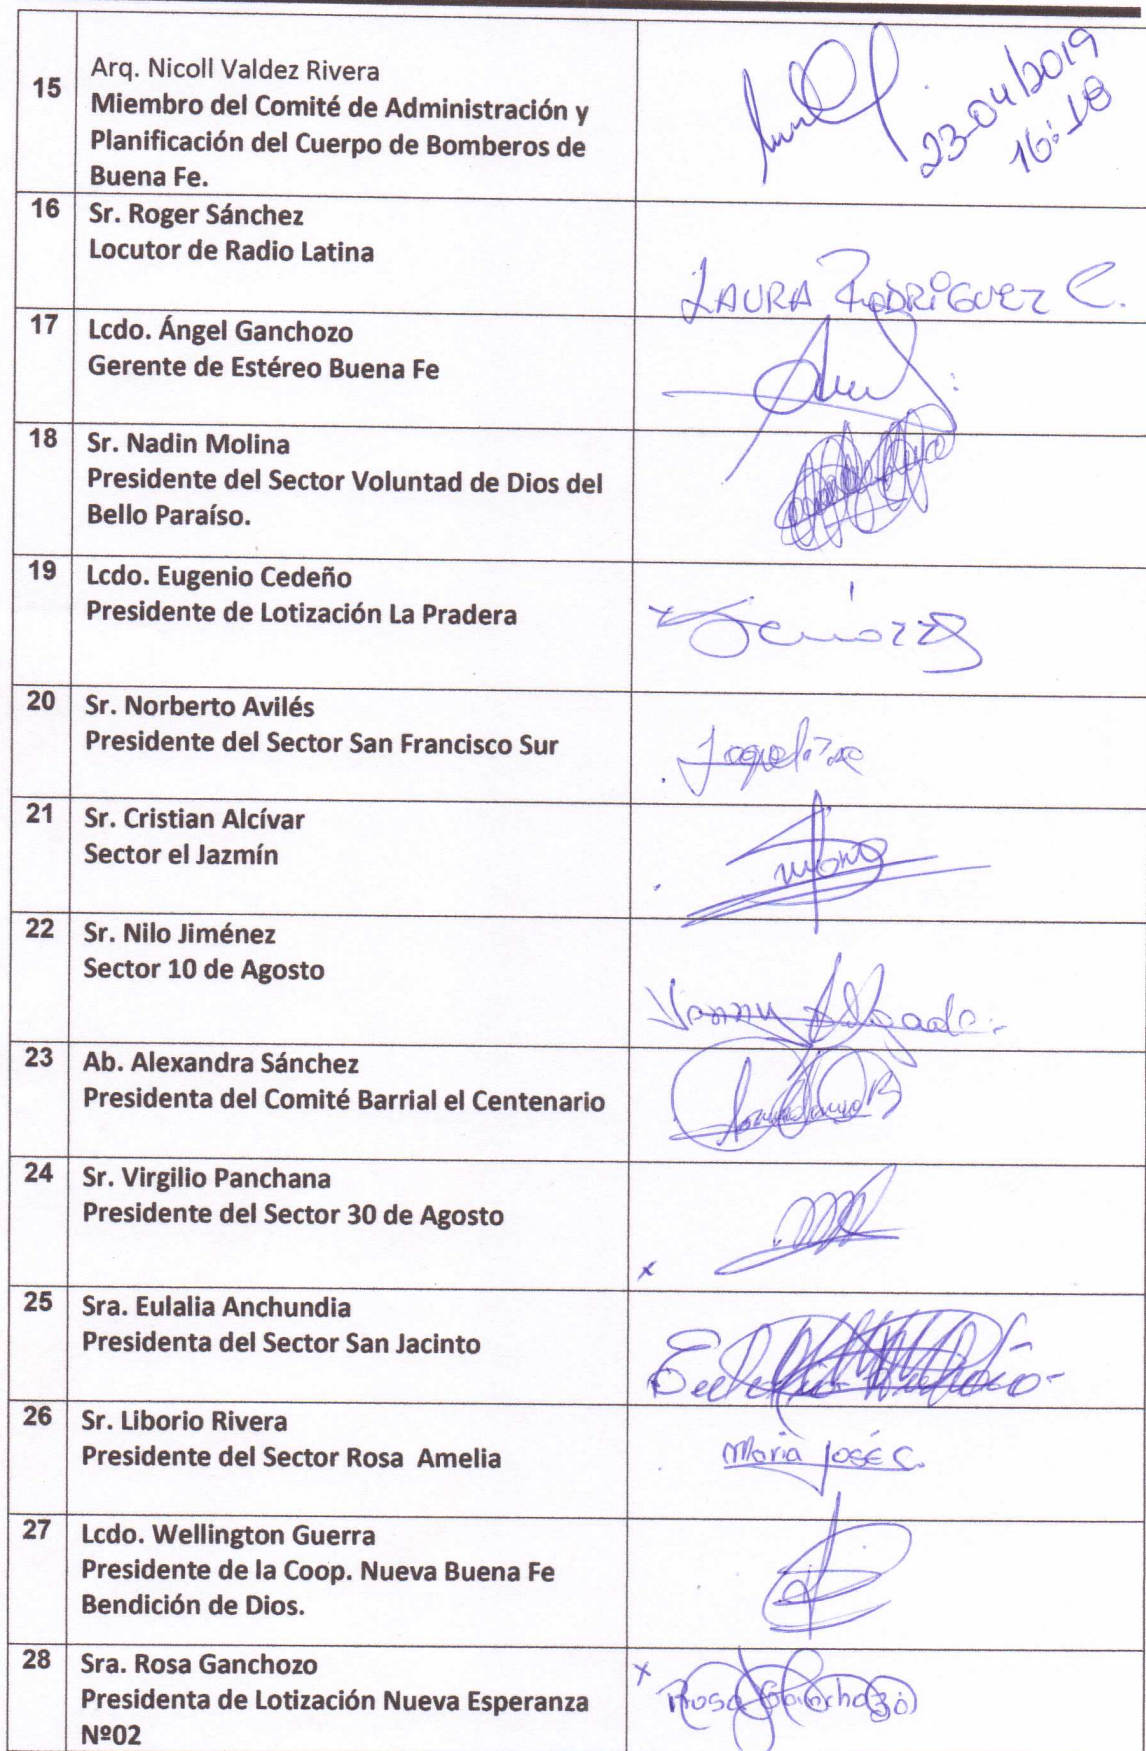 15
Arq. Nicoll Valdez Rivera
Miembro del Comité de Administración y
Planificación del Cuerpo de Bomberos de
Buena Fe.
23-04/2019
16:18
16
Sr. Roger Sánchez
Locutor de Radio Latina
LAURA RODRíGUEZ C.
17
Lcdo. Ángel Ganchozo
Gerente de Estéreo Buena Fe
18
Sr. Nadin Molina
Presidente del Sector Voluntad de Dios del
Bello Paraíso.
19
Lcdo. Eugenio Cedeño
Presidente de Lotización La Pradera
20
Sr. Norberto Avilés
Presidente del Sector San Francisco Sur
21
Sr. Cristian Alcívar
Sector el Jazmín
22
Sr. Nilo Jiménez
Sector 10 de Agosto
23
Ab. Alexandra Sánchez
Presidenta del Comité Barrial el Centenario
24
Sr. Virgilio Panchana
Presidente del Sector 30 de Agosto
x
25
Sra. Eulalia Anchundia
Presidenta del Sector San Jacinto
26
Sr. Liborio Rivera
Presidente del Sector Rosa Amelia
Maria José C.
27
Lcdo. Wellington Guerra
Presidente de la Coop. Nueva Buena Fe
Bendición de Dios.
28
Sra. Rosa Ganchozo
Presidenta de Lotización Nueva Esperanza
Nº02
x Rosa Ganchozo